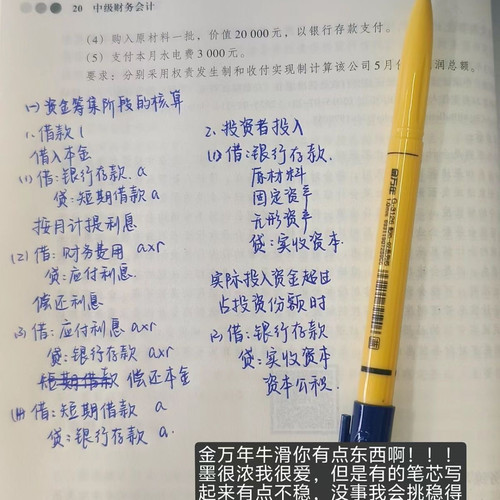 20 中级财务会计
(4) 购入原材料一批，价值 20 000 元，以银行存款支付。
(5) 支付本月水电费 3 000 元。
要求：分别采用权责发生制和收付实现制计算该公司 5 月份 润总额。
(一) 资金筹集阶段的核算
1、借款
借入本金
(1) 借：银行存款 a
贷：短期借款 a
按月计提利息
(2) 借：财务费用 axr
贷：应付利息
偿还利息
(3) 借：应付利息 axr
贷：银行存款 axr
短期借款 偿还本金
(4) 借：短期借款 a
贷：银行存款 a
2、投资者投入
(1) 借：银行存款
原材料
固定资产
无形资产
贷：实收资本
实际投入资金超过
占投资份额时
(2) 借：银行存款
贷：实收资本
资本公积
金万年
金万年牛滑你有点东西啊！！！
墨很浓我很爱，但是有的笔芯写
起来有点不稳，没事我会挑稳得